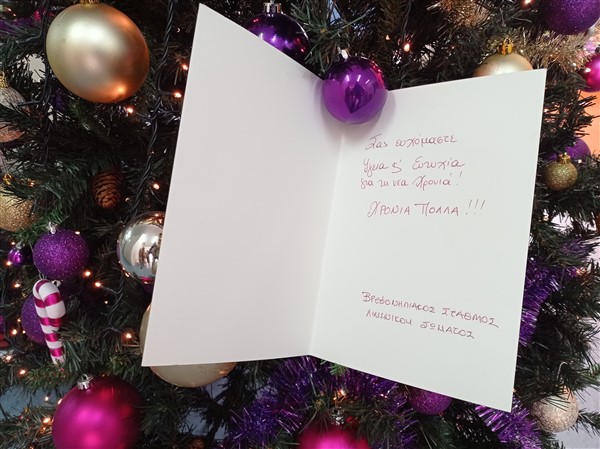 Σας ευχόμαστε
Υγεία & Ευτυχία
για τη νέα Χρονιά!
ΧΡΟΝΙΑ ΠΟΛΛΑ!!!
ΒΡΕΦΟΝΗΠΙΑΚΟΣ ΣΤΑΘΜΟΣ
ΛΙΜΕΝΙΚΟΥ ΣΩΜΑΤΟΣ